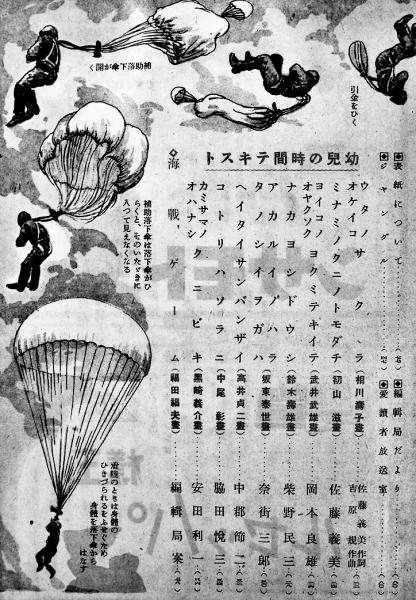 引金をひく
補助落下傘が開く
補助落下傘は落下傘がひ
らくと、そのいたゞきに
入つて見えなくなる
着陸のときは身體の
ひきづられるをふせぐため
身體を落下傘から
はなす
幼兒の時間テキスト
◆表紙について
◆ジャングル
◆編輯局だより
◆愛讀者放送室
ウタノ オケイコ サクラ (相川濤子畫) 佐藤義美作詞 吉原規作曲
ミナミノクニノトモダチ (初山滋畫) 佐藤義美
ヨイコノ オヤクソク ヨクミテキイテ (武井武雄畫) 岡本良雄
ナカヨシドウシ (鈴木壽雄畫) 柴野民三
アカルイノハラ
タノシイヲガハ (坂東泰世畫) 奈街三郎
ヘイタイサンバンザイ (高井貞二畫) 中郡節二
コトリハソラニ (中尾彰畫) 脇田悦三
カミサマノ オハナシ クニビキ (黒崎義介畫) 安田利一
◇海戰ゲーム (福田福夫畫) 編輯局案